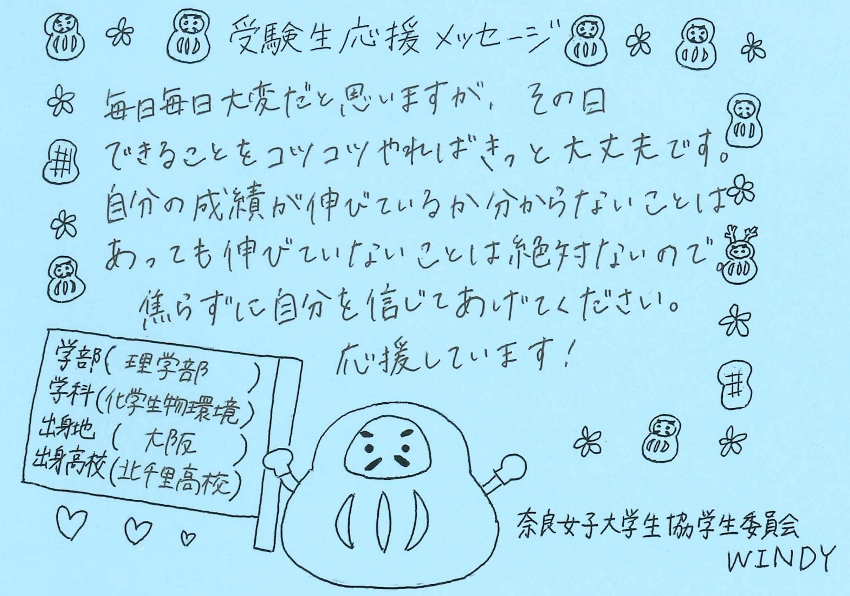 受験生応援メッセージ
毎日毎日大変だと思いますが、その日
できることをコツコツやればきっと大丈夫です。
自分の成績が伸びているか分からないことは
あっても伸びていないことは絶対ないので。
焦らずに自分を信じてあげてください。
応援しています！
学部(理学部)
学科(化学生物環境)
出身地(大阪)
出身高校(北千里高校)
奈良女子大学生協学生委員会
WINDY